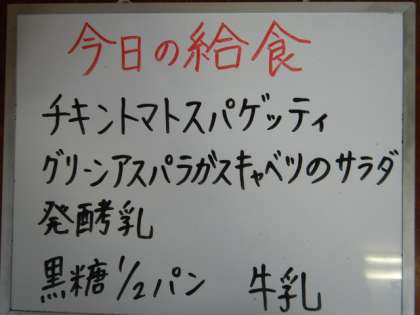 今日の給食
チキントマトスパゲッティ
グリーンアスパラガスキャベツのサラダ
発酵乳
黒糖1/2パン 牛乳